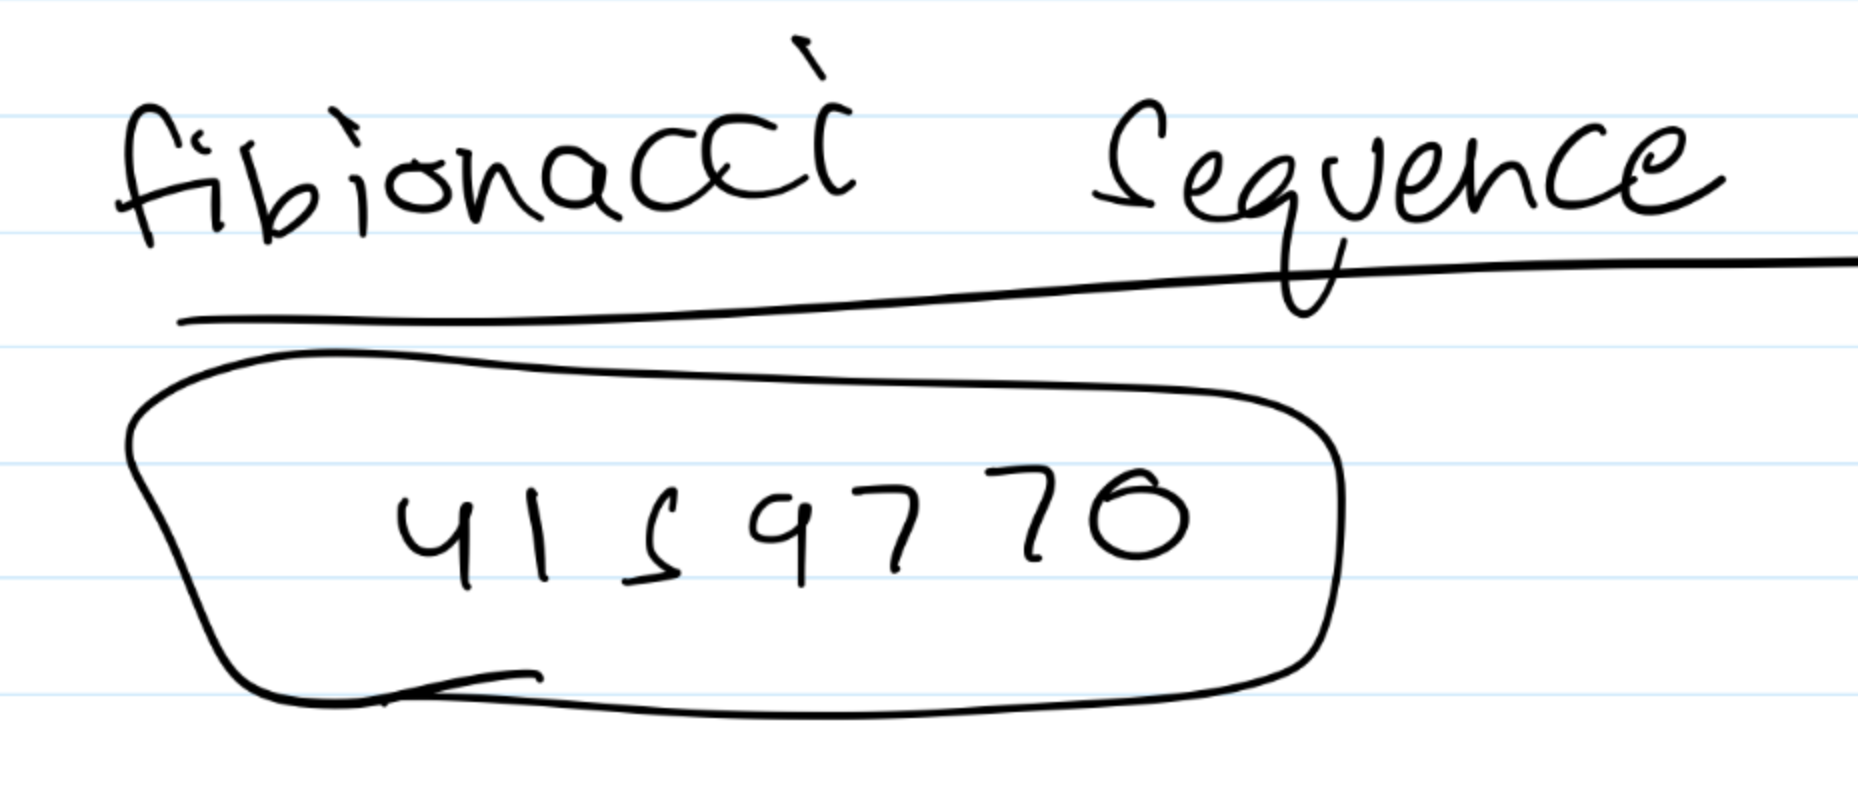 fibionacci sequence
4159770